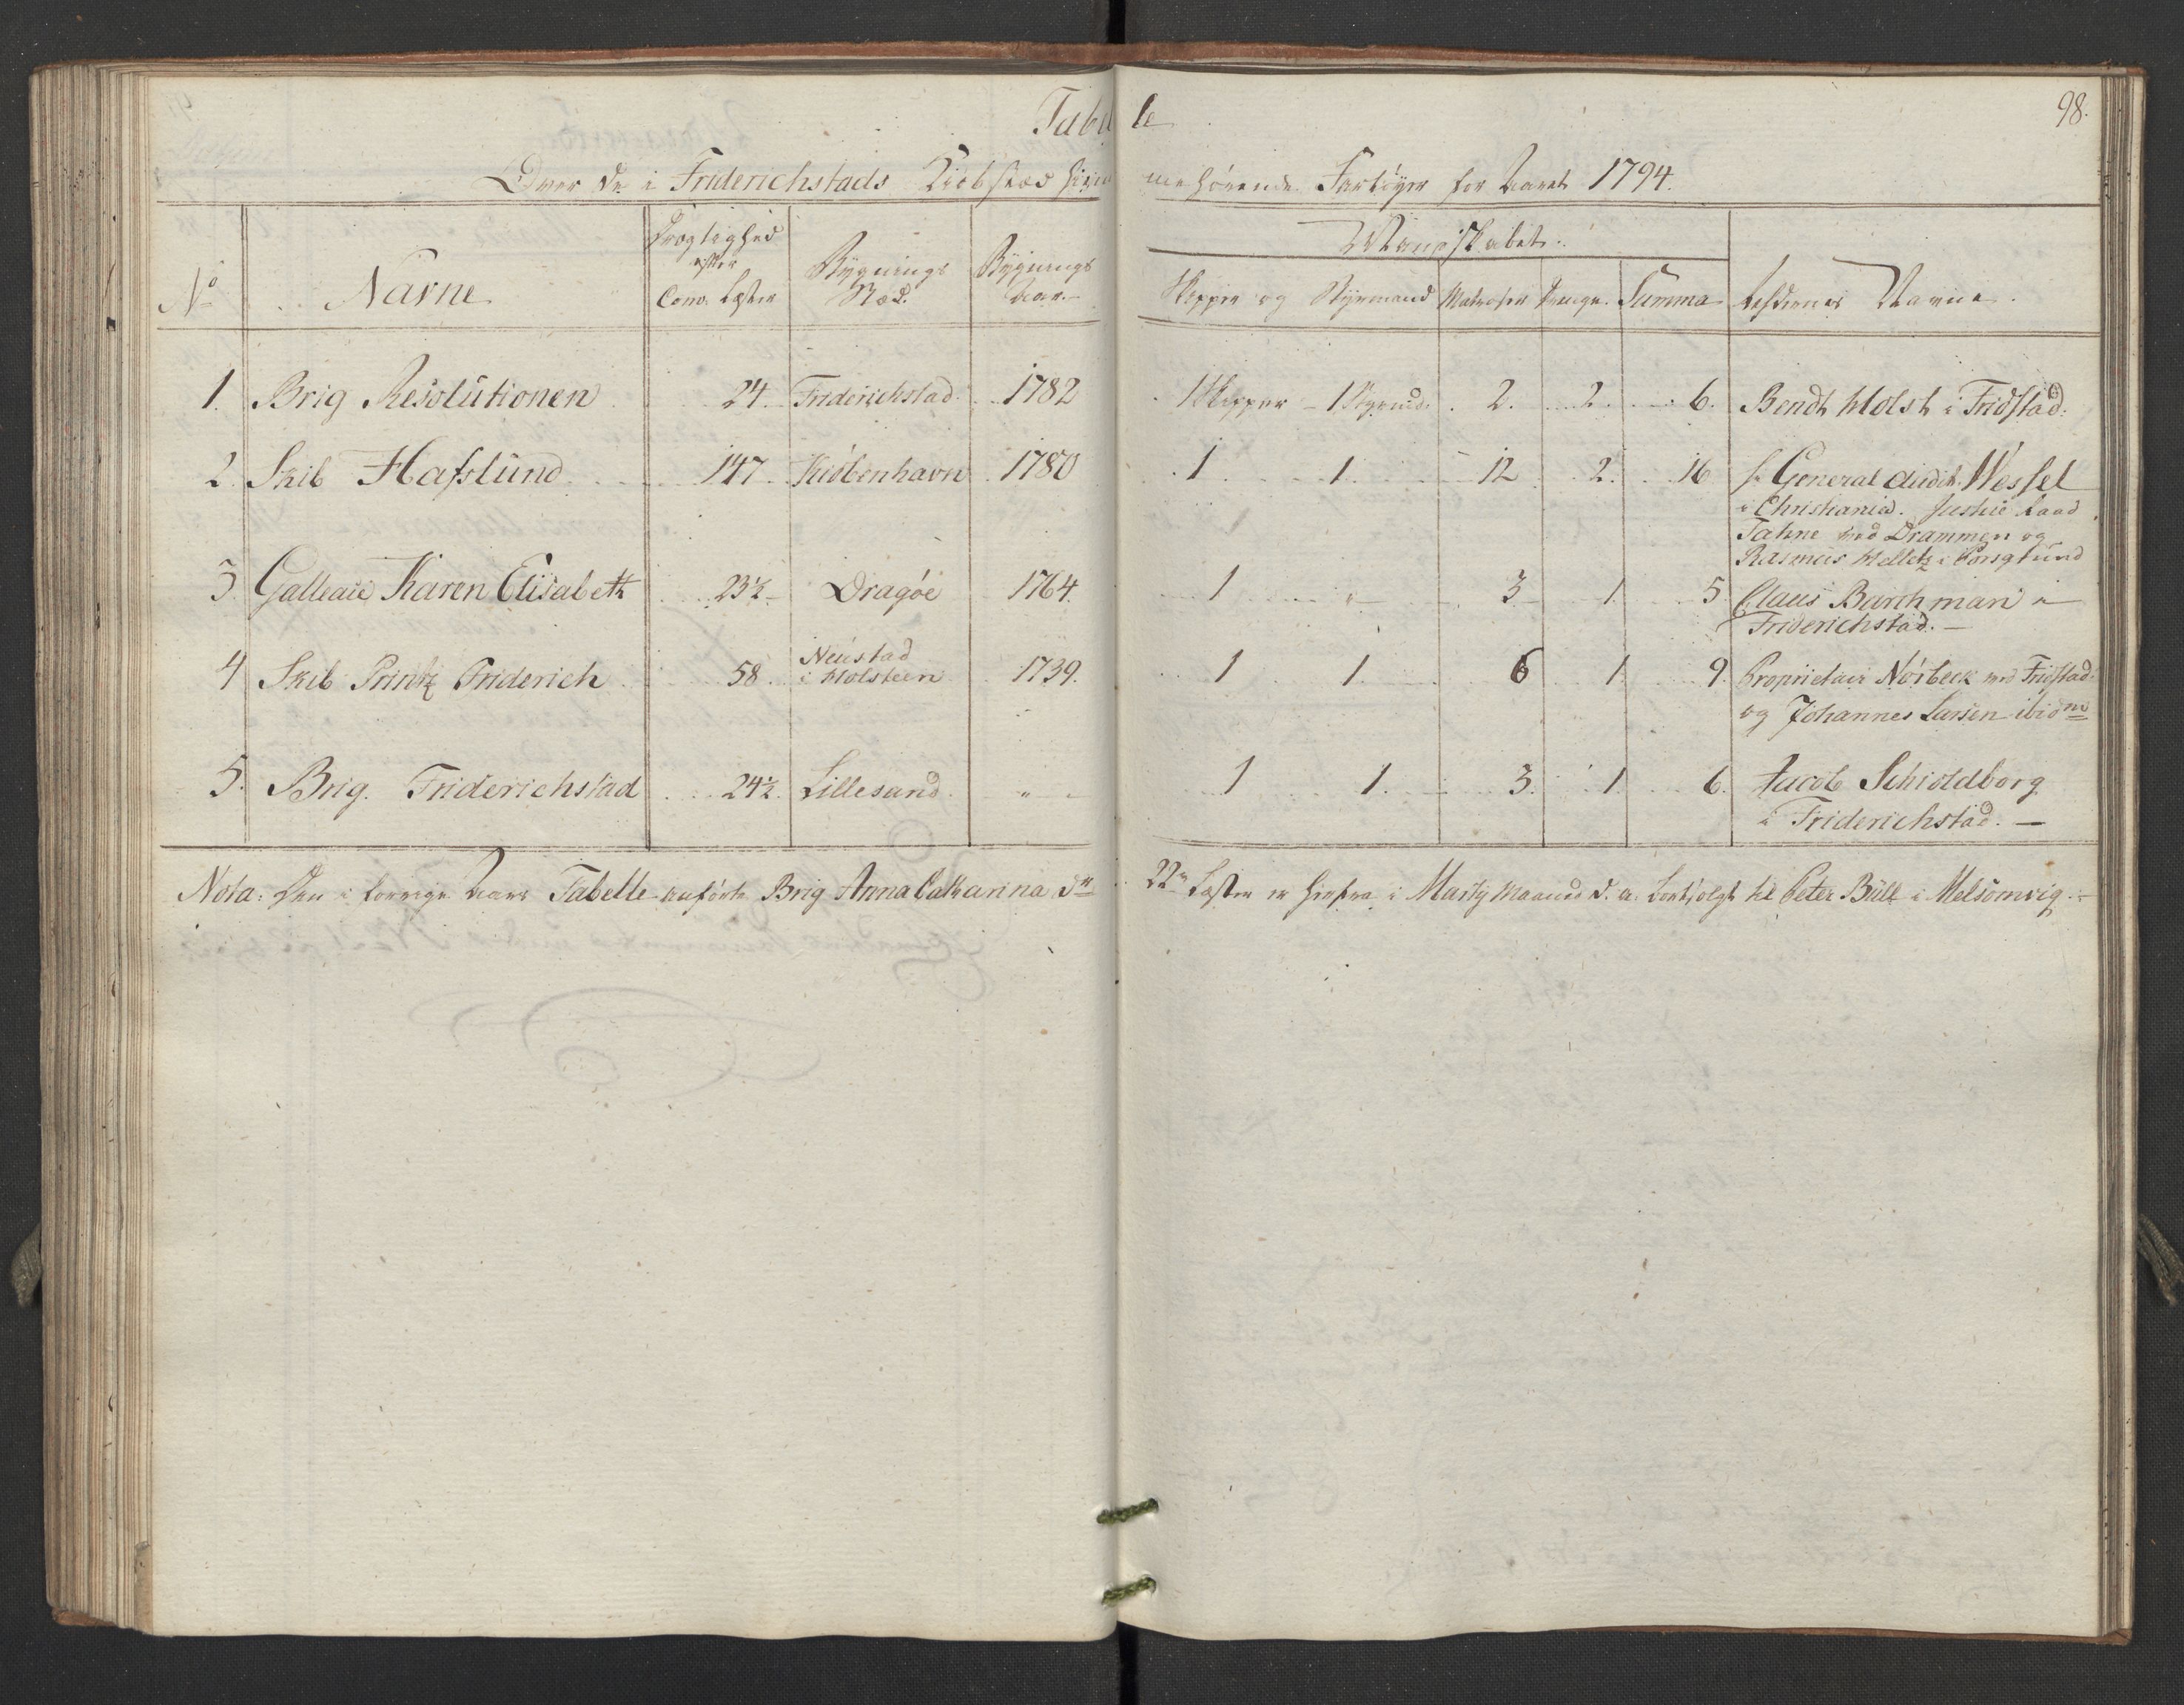 98.
Tabelle
Over de i Friderichstads Kiöbstæd hiemmehörende Fartöyer for Aaret 1794.
No Navne Drægtighed efter Com. Læster Bygnings Stæd. Bygnings Aar. Mandskabet. Skipper og Styrmand Matroser Drenge. Summa Navne.
1. Brig Resolutionen 24. Friderichstad. 1782 1 Skipper 1 Styrmd. 2. 2. 6. Bendt Holst i Fridstad.
2. Skib Hafslund 147. Kiöbenhavn 1780 1 1 12 2. 16 Hr General Audit. Wessel
i Christiania. Justic Raad
ved Drammen og
Rasmus
3. Galleaie Karen Elisabeth 23½ Dragöe 1764. 1 " 3 1 5 Claus Barchman i
Friderichstad. —
4 Skib Printz Friderich 58. Neustad
i Holsteen 1739. 1 1 6 1 9. Proprietair Nörbeck ved Fridstad
og Johannes Larsen ibidm
5. Brig. Friderichstad 24½. Lillesand. " 1 1. 3. 1 6. Jacob Schioldborg
i Friderichstad. —
Nota: Den i forrige Aars Tabelle anförte Brig Anna Catharina dr. 22 Læster er hierfra i Martij Maaned d. a. bortsolgt til Peter Bull i Melsomvig.